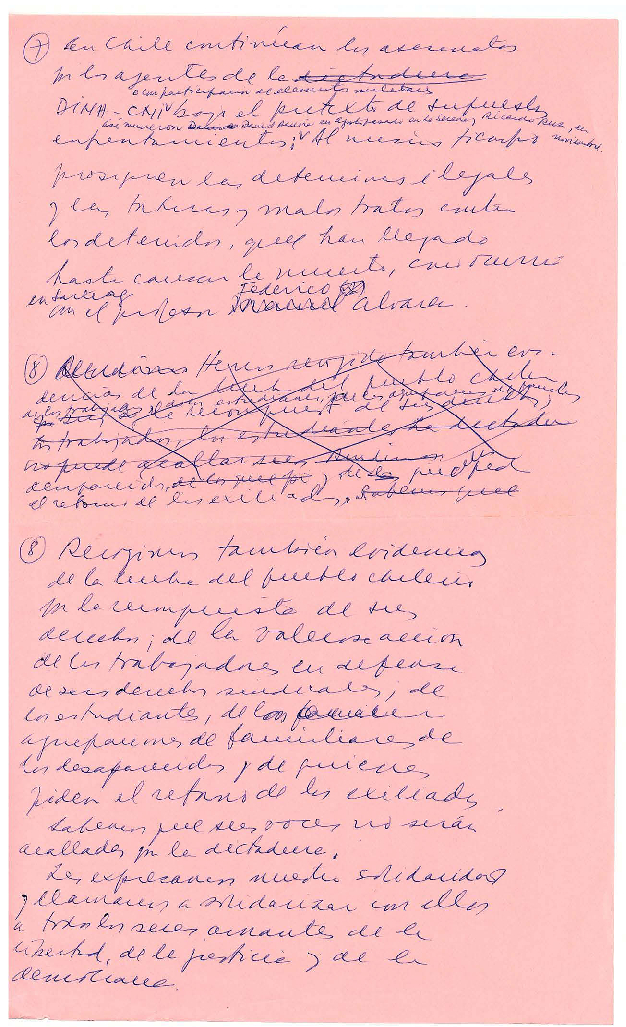 ⑦ En Chile continúan los asesinatos
por los agentes de la dictadura
o con participación de elementos militares
DINA-CNI bajo el pretexto de supuestos
así murieron en en La Serena y Ricardo Ruz, en
enfrentamientos; Al mismo tiempo noviembre.
prosiguen las detenciones ilegales
y las torturas y malos tratos contra
los detenidos, que han llegado
hasta causar la muerte, como ocurrió
en Santiago Federico
con el profesor Alvarez.
⑧ Hemos recogido también evi-
dencias de la lucha del pueblo chileno
de los trabajadores, de los estudiantes, de las agrupaciones de familiares
por la reconquista de sus derechos,
los trabajadores, los estudiantes. La dictadura
no puede acallar sus
desaparecidos, y de los que piden
el retorno de los exiliados. Sabemos que
⑧ Recogimos también evidencias
de la lucha del pueblo chileno
por la reconquista de sus
derechos; de la valerosa acción
de los trabajadores en defensa
de sus derechos sindicales; de
los estudiantes, de las
agrupaciones de familiares de
los desaparecidos y de quienes
piden el retorno de los exiliados.
Sabemos que sus voces no serán
acalladas por la dictadura.
Les expresamos nuestra solidaridad
y llamamos a solidarizar con ellos
a todos los seres amantes de la
libertad, de la justicia y de la
democracia.